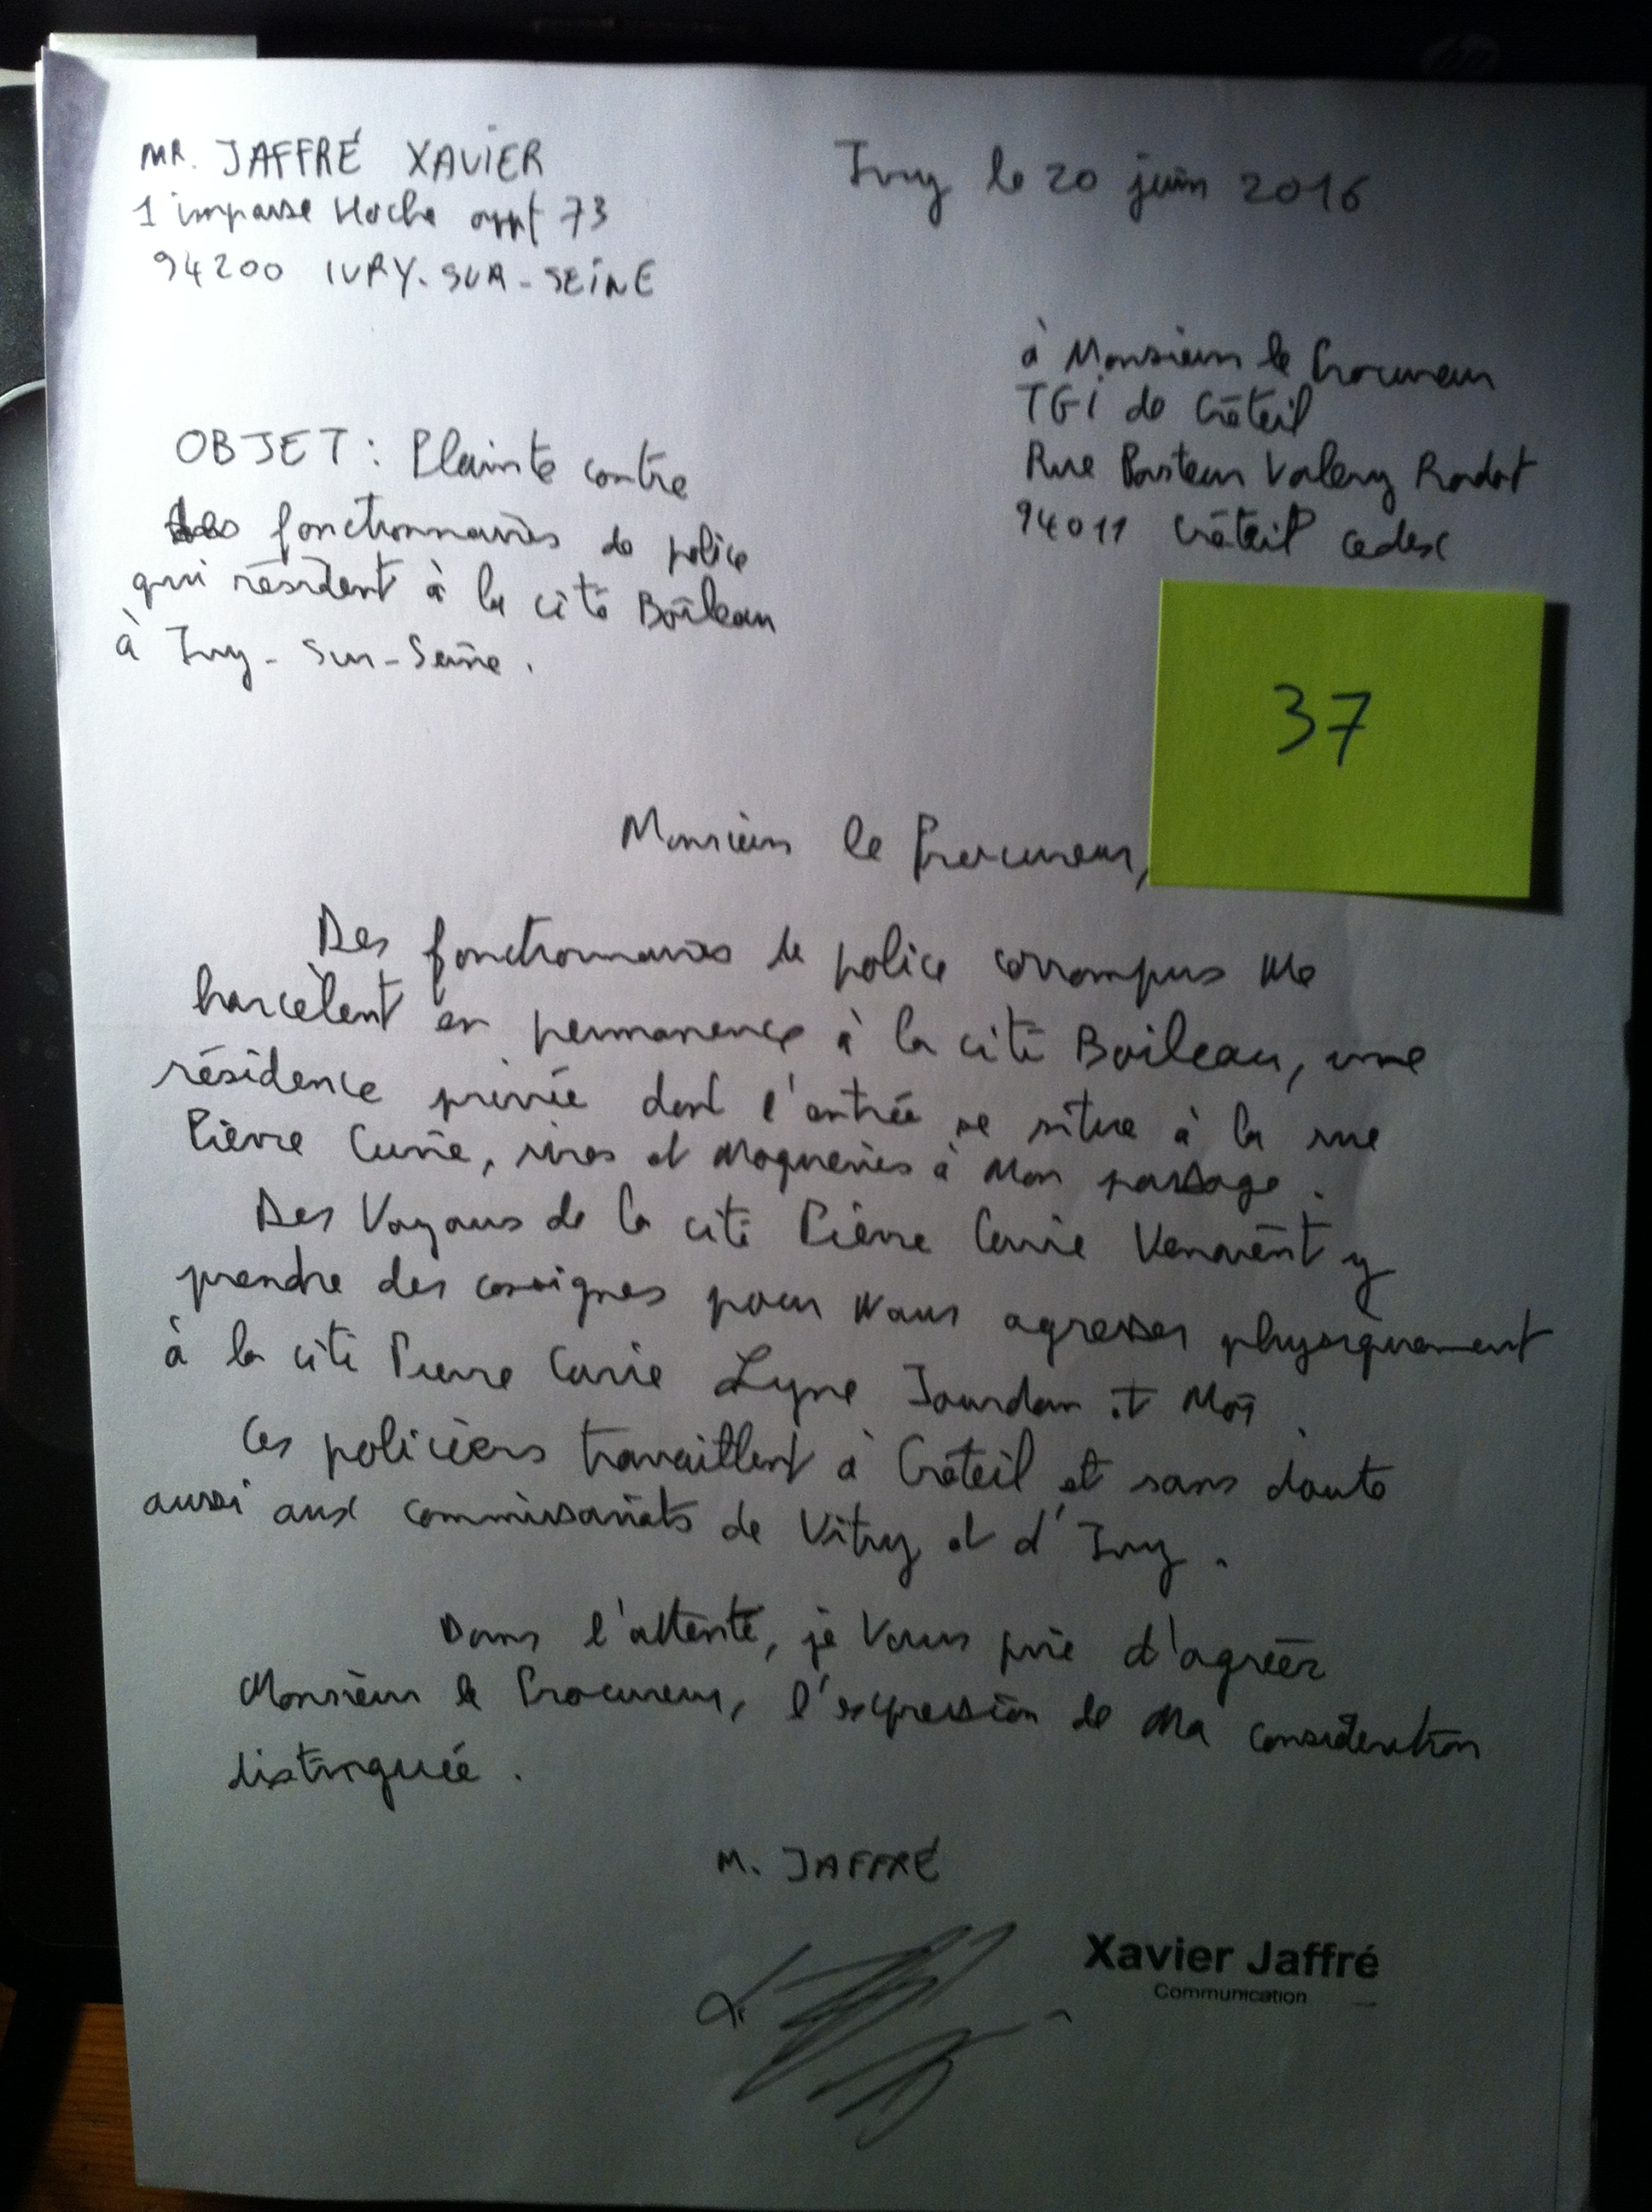 MR. JAFFRÉ XAVIER
1 impasse Hoche appt 73
94200 IVRY-SUR-SEINE
Ivry le 20 juin 2016
à Monsieur le Procureur
TGI de Créteil
Rue Pasteur Valery Radot
94011 Créteil cedex
OBJET : Plainte contre
des fonctionnaires de police
qui résident à la cité Boileau
à Ivry-sur-Seine.
37
Monsieur le Procureur,
Des fonctionnaires de police corrompus me
harcèlent en permanence à la cité Boileau, une
résidence privée dont l'entrée se situe à la rue
Pierre Curie, rires et moqueries à mon passage.
Des voyous de la cité Pierre Curie venaient y
prendre des consignes pour nous agresser physiquement
à la cité Pierre Curie Lyne Jourdan et moi.
Ces policiers travaillent à Créteil et sans doute
aussi aux commissariats de Vitry et d'Ivry.
Dans l'attente, je vous prie d'agréer
Monsieur le Procureur, l'expression de ma considération
distinguée.
M. JAFFRÉ
Xavier Jaffré
Communication